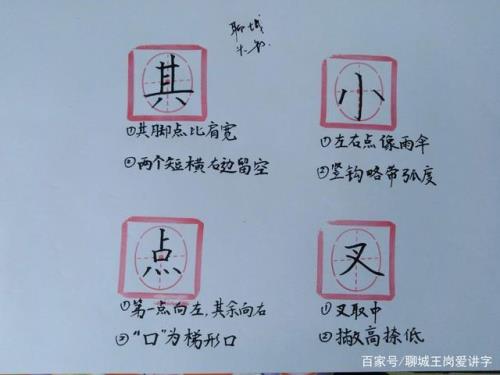 聊城
其
①其脚点比肩宽
②两个短横右边留空
小
①左右点像雨伞
②竖钩略带弧度
点
①第一点向左,其余向右
②“口”为梯形口
叉
①叉取中
②撇高捺低
百家号/聊城王岗爱讲字